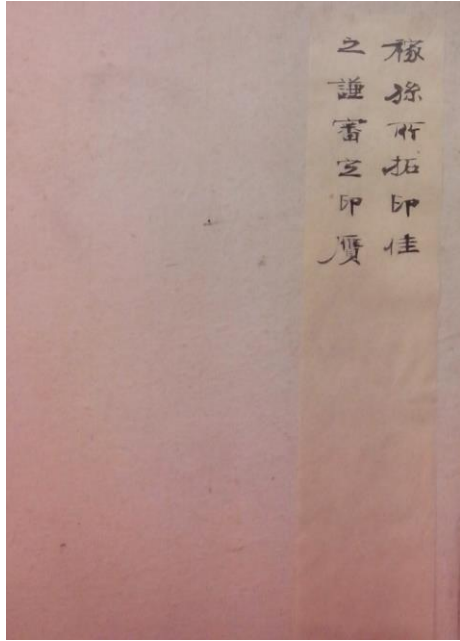 稼孫所拓印佳
之謙審定印贋